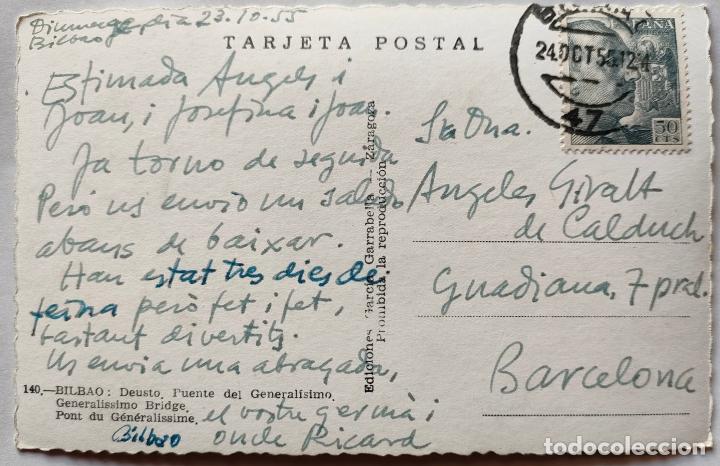 Diumenge dia 23.10.55
Bilbao
TARJETA POSTAL
ESPAÑA
24 OCT 55 12
47
50
CTS
Estimada Angels i
Joan, i Josefina i Joan.
Ja torno de seguida
Però us envio un salut
abans de baixar.
Han estat tres dies de
feina però fet i fet,
bastant divertits.
Us envia una abraçada,
el vostre germà i
oncle Ricard
Bilbao
140.—BILBAO: Deusto. Puente del Generalísimo.
Generalissimo Bridge.
Pont du Généralissime.
Ediciones García Garrabella — Zaragoza
Prohibida la reproducción
Sra Dna.
Angeles Giralt
de Calduch
Guadiana, 7 pral.
Barcelona
todocoleccion